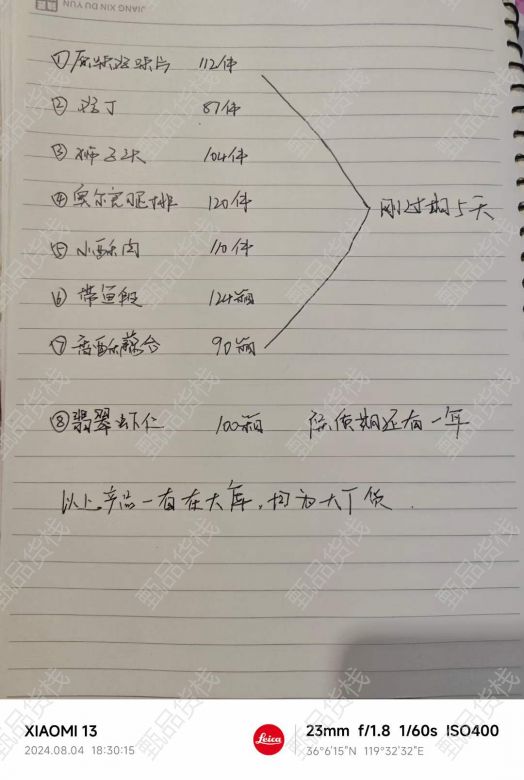 JIANG XIN DU YUN
①原味鸡块 112件
②鸡丁 87件
③狮子头 104件
④奥尔良腿排 120件
⑤小酥肉 110件
⑥带鱼段 124箱
⑦香酥藕合 90箱
刚过期5天
⑧翡翠虾仁 100箱 保质期还有一年
以上产品一直在大库,均为大厂货.
甄品货栈
XIAOMI 13
2024.08.04 18:30:15
Leica
23mm f/1.8 1/60s ISO400
36°6'15"N 119°32'32"E